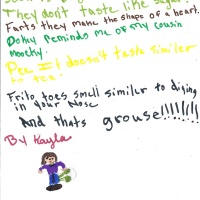 They dont taste like
Farts they make the shape of a heart.
Dokey reminds me of my cousin
mooky.
Pee =! doesn't taste similer
to tea!
Frito toes smell similar to diging
in your Nose
And thats grouse!!!!!!!!
By Kayla